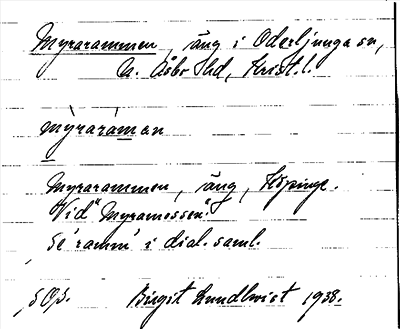 Myrarammen, äng i Oderljunga sn,
N. Åsbo hd, Krist. l.
mỳraráman
Myrarammen, äng, Köpinge.
Vid "Myramossen".
Se 'ramm' i dial. saml.
Birgit Lundkvist 1938.